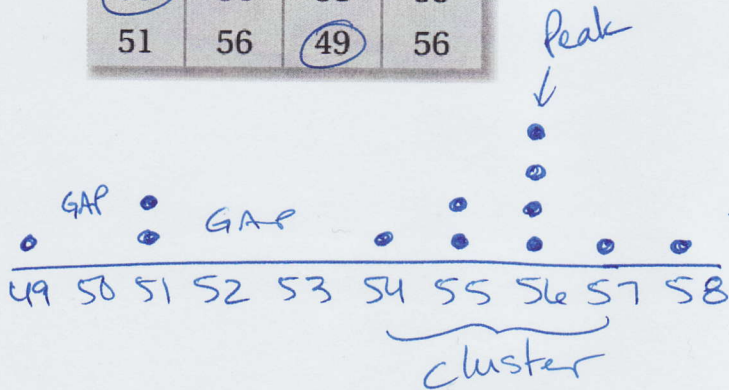 51 56 49 56
Peak
GAP GAP
49 50 51 52 53 54 55 56 57 58
cluster